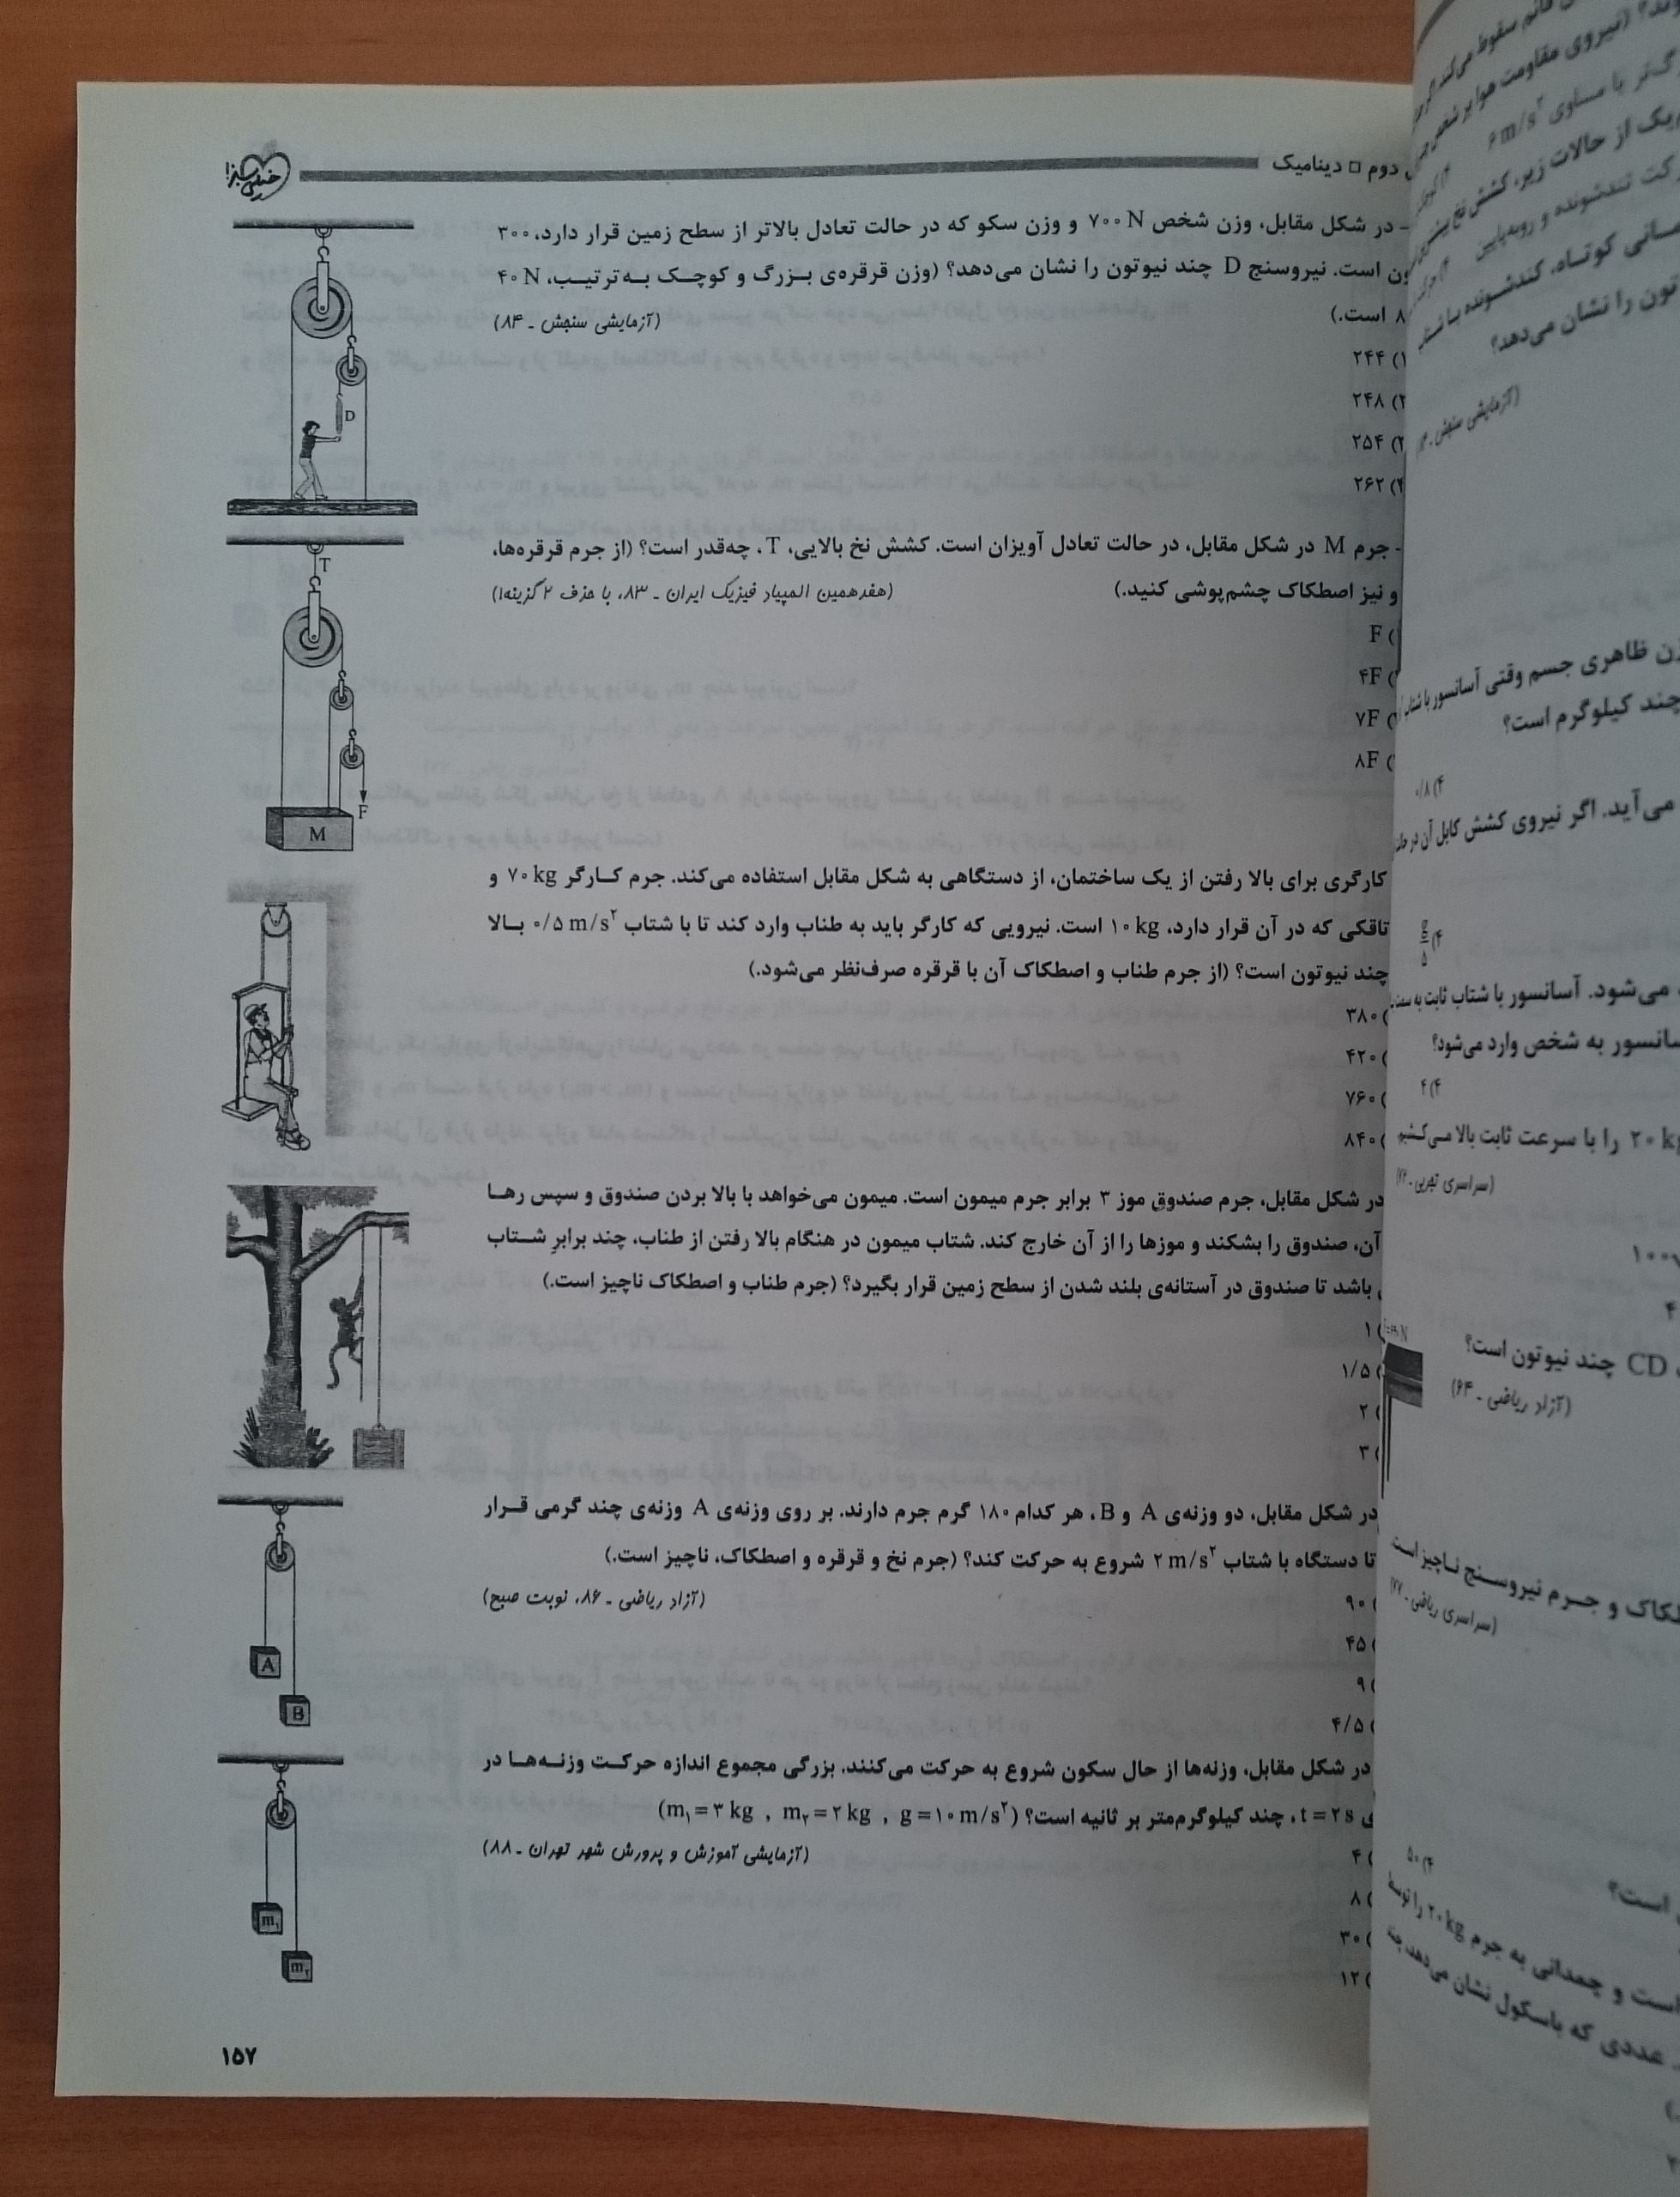 دوم □ دینامیک
خیلی سبز!
- در شکل مقابل، وزن شخص ۷۰۰ N و وزن سکو که در حالت تعادل بالاتر از سطح زمین قرار دارد، ۳۰۰
است. نیروسنج D چند نیوتون را نشان می‌دهد؟ (وزن قرقره‌ی بزرگ و کوچک به‌ترتیب، ۴۰ N
۸ است.)
(آزمایشی سنجش ـ ۸۴)
۲۴۴
۲۴۸
۲۵۴
۲۶۲
D
- جرم M در شکل مقابل، در حالت تعادل آویزان است. کشش نخ بالایی، T، چه‌قدر است؟ (از جرم قرقره‌ها،
و نیز اصطکاک چشم‌پوشی کنید.)
(هفدهمین المپیاد فیزیک ایران ـ ۸۳، با حذف ۲ گزینه!)
F
۴F
۷F
۸F
T
F
M
کارگری برای بالا رفتن از یک ساختمان، از دستگاهی به شکل مقابل استفاده می‌کند. جرم کارگر ۷۰ kg و
تاقکی که در آن قرار دارد، ۱۰ kg است. نیرویی که کارگر باید به طناب وارد کند تا با شتاب ۰/۵ m/s² بالا
چند نیوتون است؟ (از جرم طناب و اصطکاک آن با قرقره صرف‌نظر می‌شود.)
۳۸۰
۴۲۰
۷۶۰
۸۴۰
در شکل مقابل، جرم صندوق موز ۳ برابر جرم میمون است. میمون می‌خواهد با بالا بردن صندوق و سپس رها
آن، صندوق را بشکند و موزها را از آن خارج کند. شتاب میمون در هنگام بالا رفتن از طناب، چند برابرِ شتاب
باشد تا صندوق در آستانه‌ی بلند شدن از سطح زمین قرار بگیرد؟ (جرم طناب و اصطکاک ناچیز است.)
۱
۱/۵
۲
۳
در شکل مقابل، دو وزنه‌ی A و B، هر کدام ۱۸۰ گرم جرم دارند. بر روی وزنه‌ی A وزنه‌ی چند گرمی قرار
تا دستگاه با شتاب ۲ m/s² شروع به حرکت کند؟ (جرم نخ و قرقره و اصطکاک، ناچیز است.)
(آزاد ریاضی ـ ۸۶، نوبت صبح)
۹۰
۴۵
۹
۴/۵
A
B
در شکل مقابل، وزنه‌ها از حال سکون شروع به حرکت می‌کنند. بزرگی مجموع اندازه حرکت وزنه‌ها در
ی t = ۲s، چند کیلوگرم‌متر بر ثانیه است؟ (m₁ = ۳ kg , m₂ = ۲ kg , g = ۱۰ m/s²)
(آزمایشی آموزش و پرورش شهر تهران ـ ۸۸)
۴
۸
۳۰
۱۲
m₁
m₂
۱۵۷
قائم سقوط می‌کند
(نیروی مقاومت هوا بر شخص
یا مساوی ۶ m/s²
یک از حالات زیر، کشش نخ
حرکت تندشونده و روبه‌پایین
کوتاه، کندشونده با
را نشان می‌دهد؟
(آزمایشی سنجش ـ
ظاهری جسم وقتی آسانسور با شتاب
چند کیلوگرم است؟
۴) ۰/۸
می‌آید. اگر نیروی کشش کابل آن در
می‌شود. آسانسور با شتاب ثابت به سمت
آسانسور به شخص وارد می‌شود؟
۴) ۴
۲۰ kg را با سرعت ثابت بالا می‌کشیم
(سراسری تجربی ـ ۷۲)
۴
CD چند نیوتون است؟
(آزاد ریاضی ـ ۶۴)
و جرم نیروسنج ناچیز است
(سراسری ریاضی ـ ۷۷)
۴) ۵۰
است؟
است و چمدانی به جرم ۲۰ kg را توسط
عددی که باسکول نشان می‌دهد